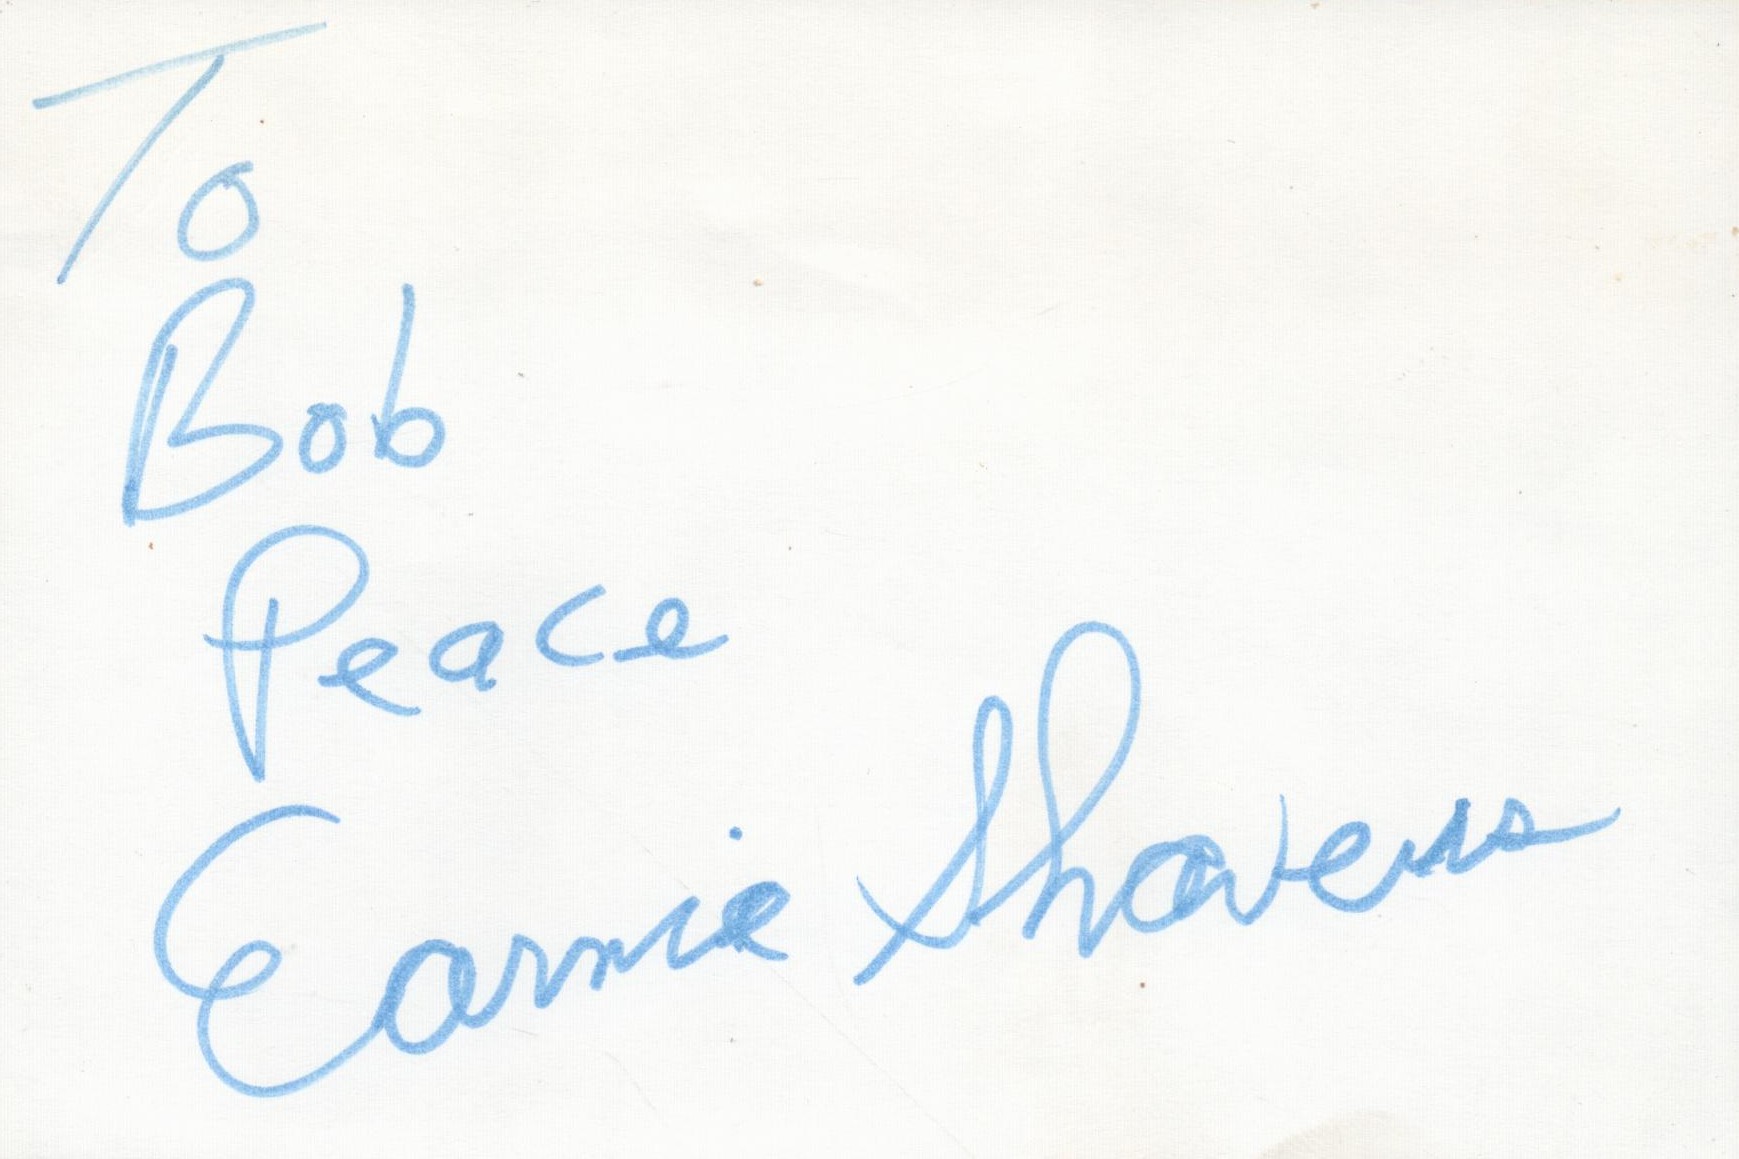 To
Bob
Peace
Earnie Shavers